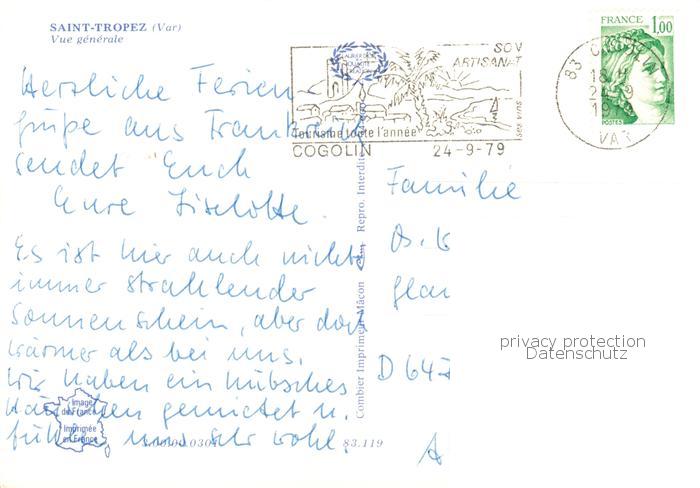 SAINT-TROPEZ (Var)
Vue générale
FRANCE 1,00
POSTES
SOV
ARTISANAT
ses vins
Tourisme toute l'année
COGOLIN 24-9-79
83 COGOLIN
18 H
24-9
19
VAR
Herzliche Ferien-
grüße aus Frankr
sendet Euch
Eure Liselotte.
Es ist hier auch nicht
immer strahlender
Sonnenschein, aber doch
wärmer als bei uns.
Wir haben ein hübsches
Häuschen gemietet u.
fühlen uns sehr wohl.
Familie
D 647
privacy protection
Datenschutz
Combier Imprimeur Mâcon Repro. Interdite
Image
de France
Imprimée
en France
83.119